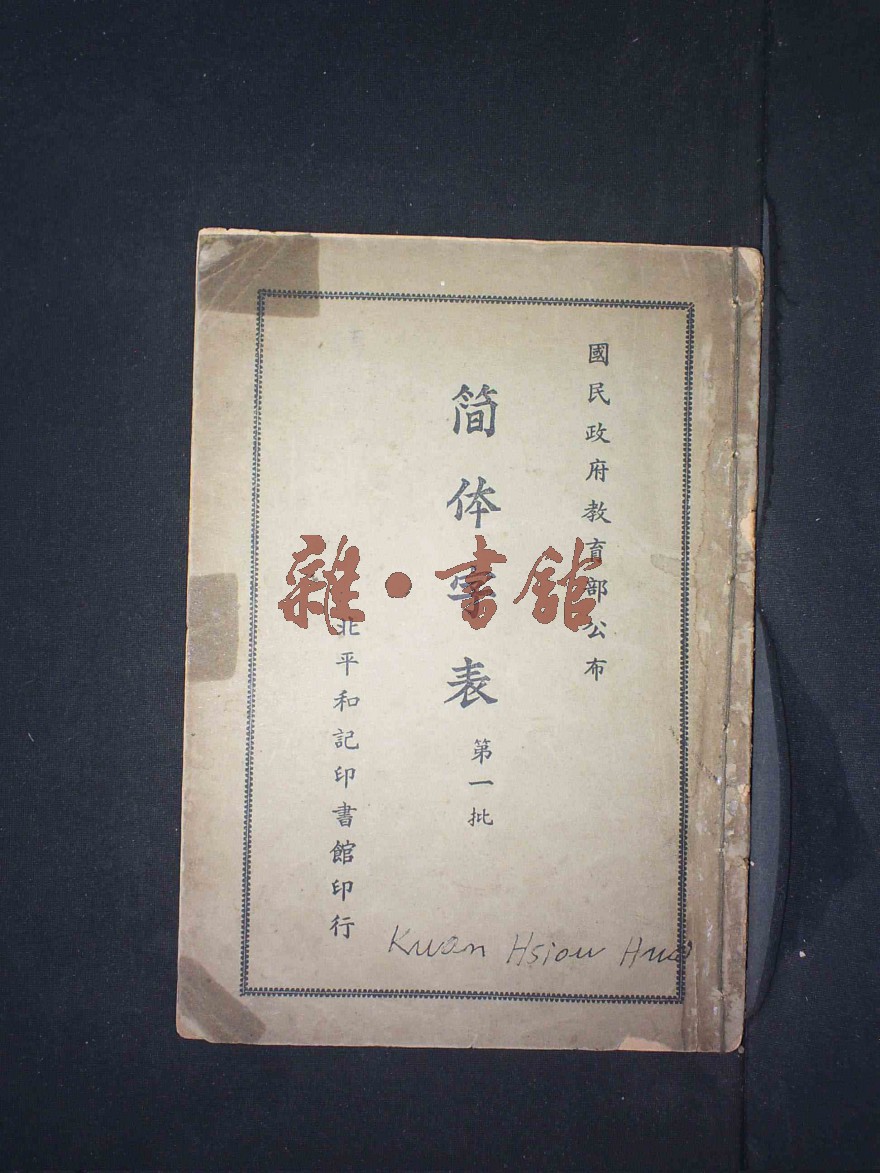 國民政府教育部公布
简体字表 第一批
北平和記印書館印行
Kuan Hsiou Hua
雜·書館